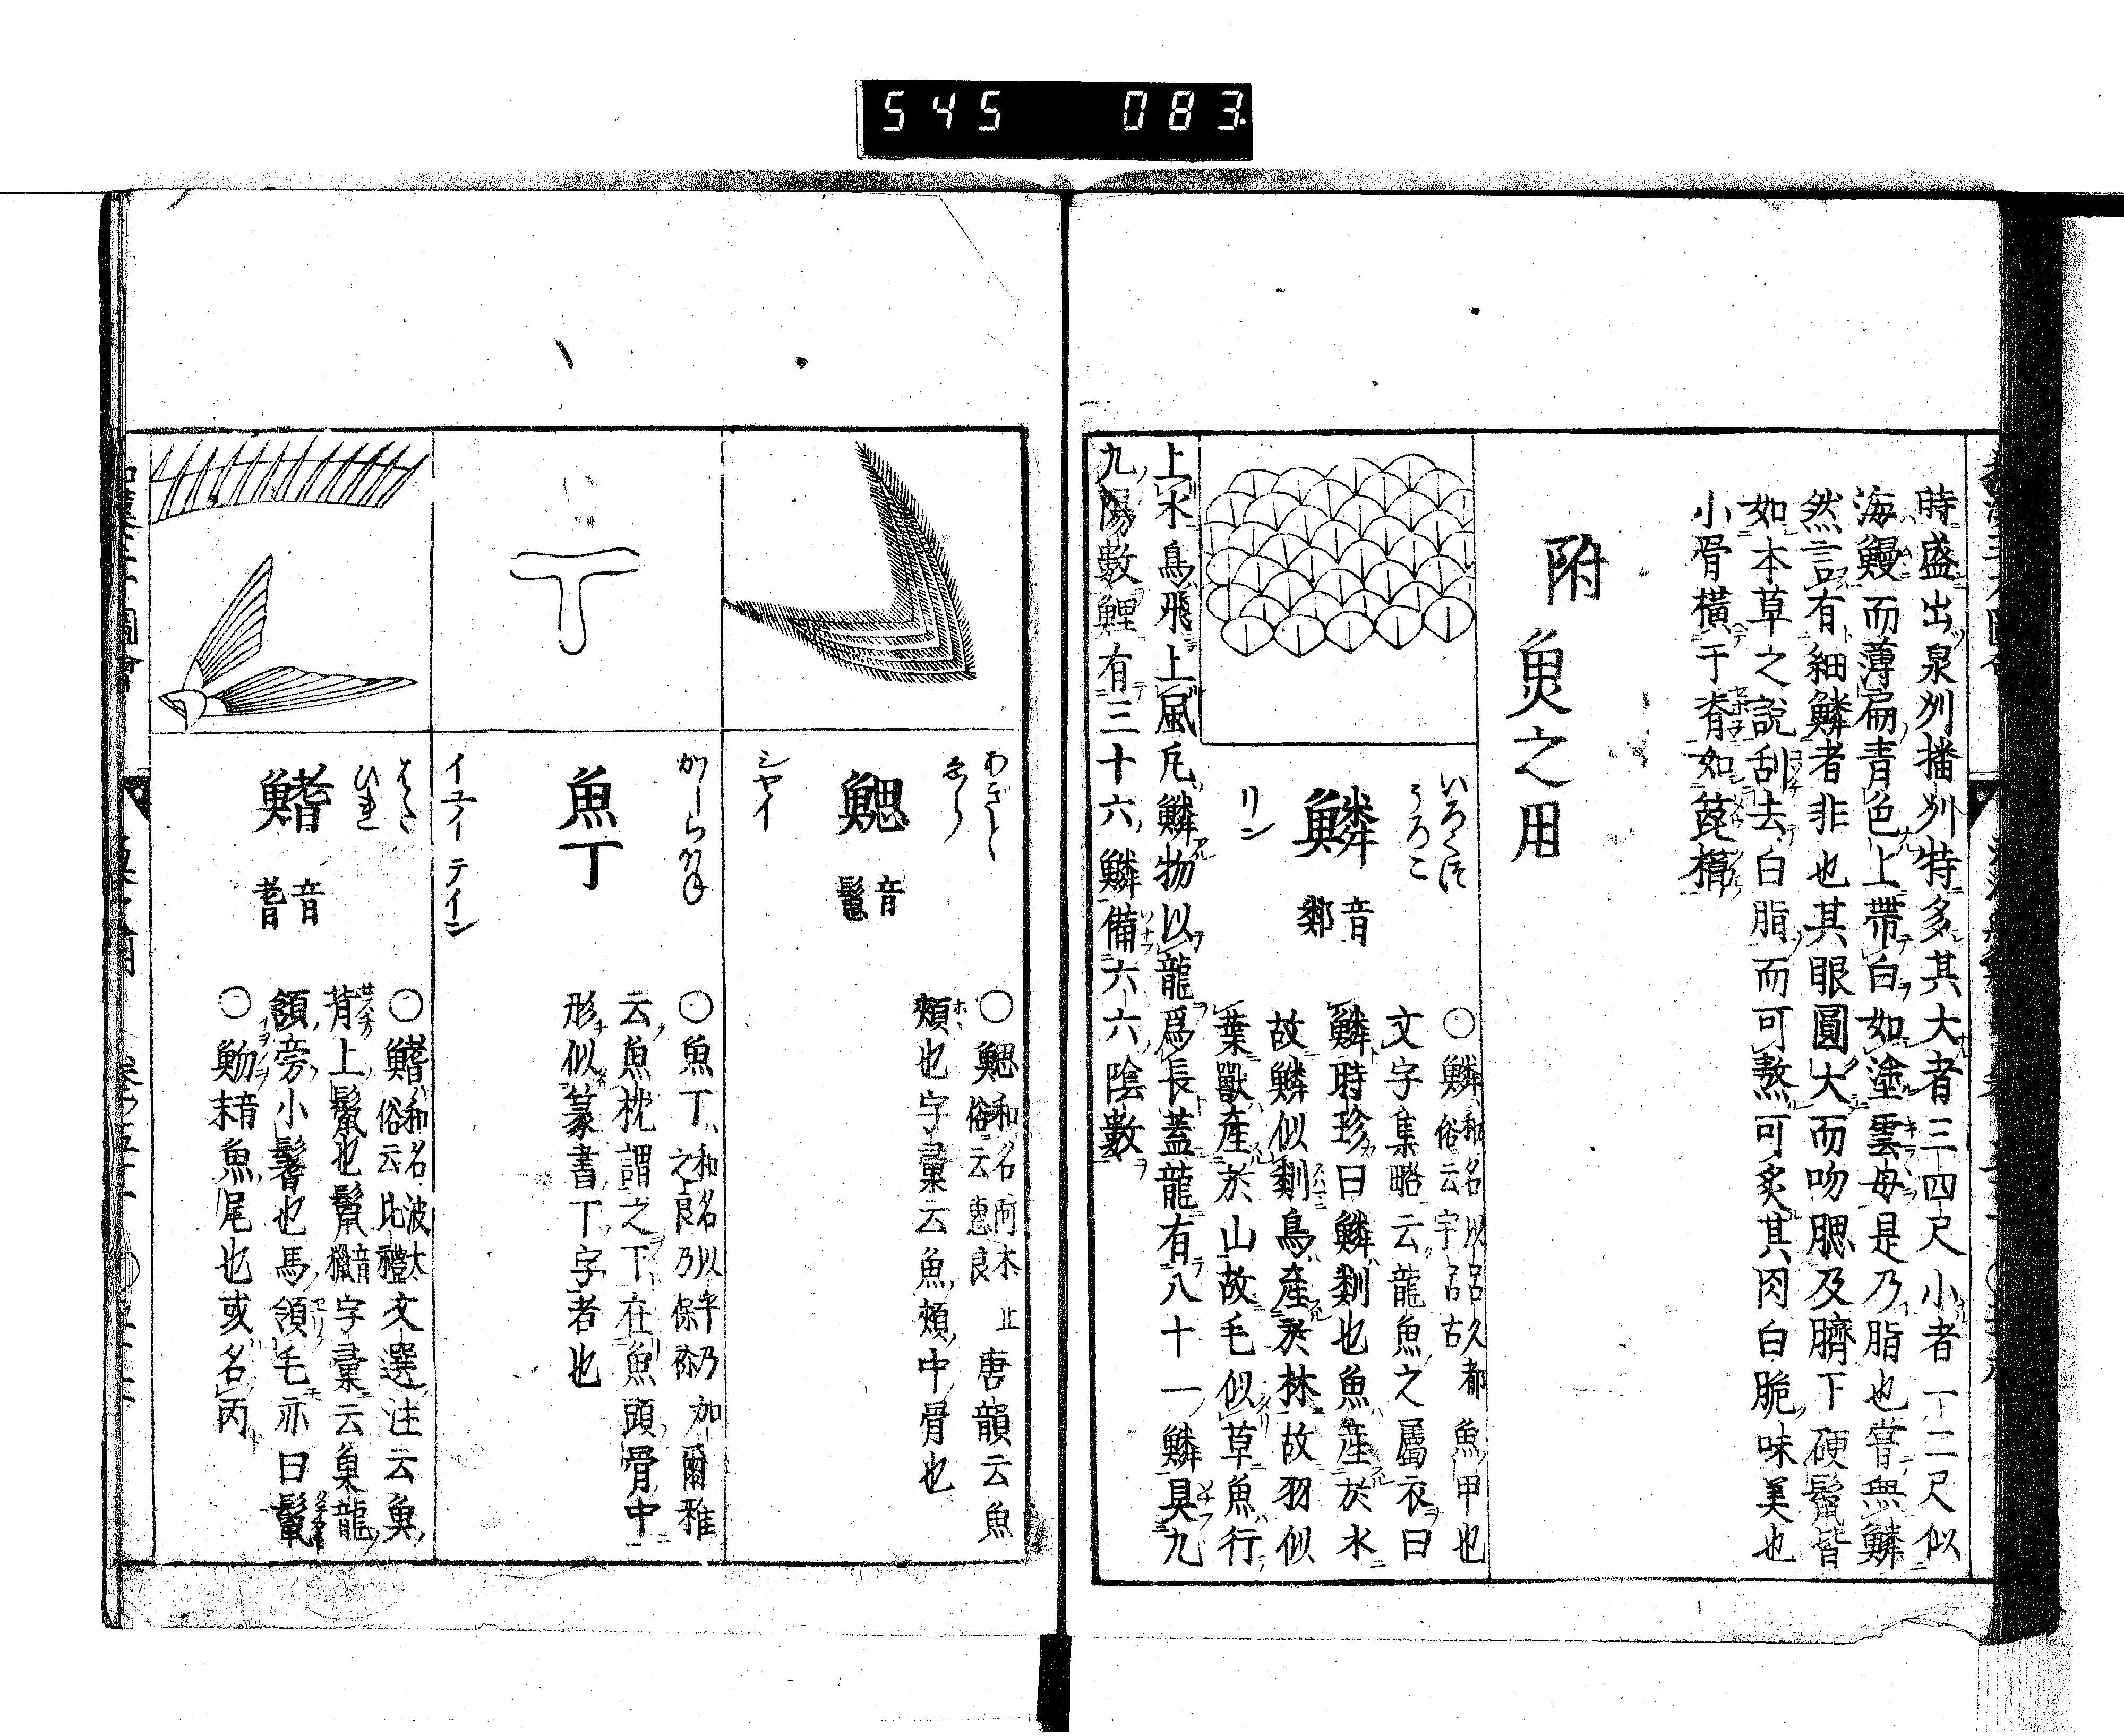 545 083
時盛出泉州播州特多其大者三四尺小者一二尺似
海鰻而薄扁青色上帶白如塗雲母是乃脂也嘗無鱗
然言有細鱗者非也其眼圓大而吻腮及臍下硬鬣皆
如本草之說刮去白脂而可熬可炙其肉白脆味美也
小骨橫于脊如篦楫
附
魚之用
いろくず
うろこ
鱗 音鄰
リン
○鱗 和名以呂久都 俗云宇呂古 魚甲也
文字集略云龍魚之屬衣曰
鱗時珍曰鱗粼也魚產於水
故鱗似粼鳥產於林故羽似
葉獸產於山故毛似草魚行
上水鳥飛上風凡鱗物以龍爲長蓋龍有八十一鱗具九
九陽數鯉有三十六鱗備六六陰數
わぎと
ゑら
鰓 音鬛
シヤイ
○鰓 和名阿木止 俗云惠良 唐韻云魚
頰也字彙云魚頰中骨也
かしらのほね
魚丁
イユイ テイン
○魚丁 和名以乎乃加之良乃保祢 爾雅
云魚枕謂之丁在魚頭骨中
形似篆書丁字者也
はた
ひれ
鰭 音耆
○鰭 和名波太 俗云比禮 文選注云魚
背上鬣也鬣 音獵 字彙云魚龍
頷旁小鬐也馬領毛亦曰鬣
○魩 音末 魚尾也或名丙